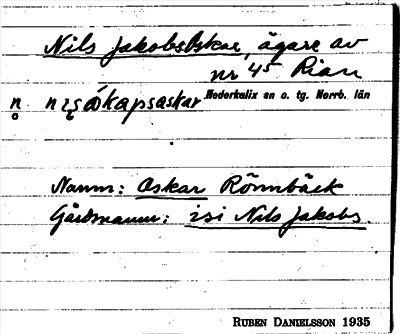 Nils JakobsOskar, ägare av
nr 45 Rian
Nederkalix sn o. tg. Norrb. län
n
Namn: Oskar Rönnbäck
Gårdsnamn: isi Nils Jakobs.
RUBEN DANIELSSON 1935